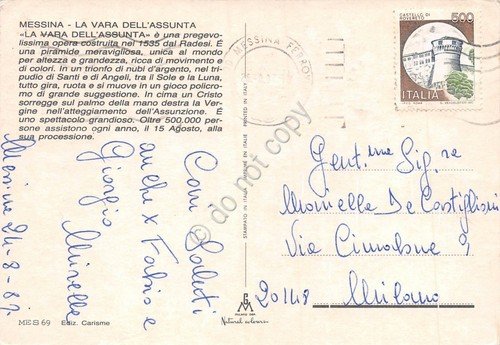 MESSINA - LA VARA DELL'ASSUNTA
«LA VARA DELL'ASSUNTA» è una pregevo-
lissima opera costruita nel 1535 dal Radesi. È
una piramide meravigliosa, unica al mondo
per altezza e grandezza, ricca di movimento e
di colori. In un trionfo di nubi d'argento, nel tri-
pudio di Santi e di Angeli, tra il Sole e la Luna,
tutto gira, ruota e si muove in un gioco policro-
mo di grande suggestione. In cima un Cristo
sorregge sul palmo della mano destra la Ver-
gine nell'atteggiamento dell'Assunzione. È
uno spettacolo grandioso. Oltre 500.000 per-
sone assistono ogni anno, il 15 Agosto, alla
sua processione.
Cari Saluti
anche x Fabio e
Giorgio
Mirella
Messina 24-8-87
MES 69 Ediz. Carisme
STAMPATO IN ITALIA
PRINTED IN ITALY
MILANO
Natural colour
MESSINA FERR
CASTELLO DI
ROVERETO
500
ITALIA
Gent.ma Sig.ra
Mariella De Castiglioni
Via Cimabue 9
20148 Milano
© do not copy